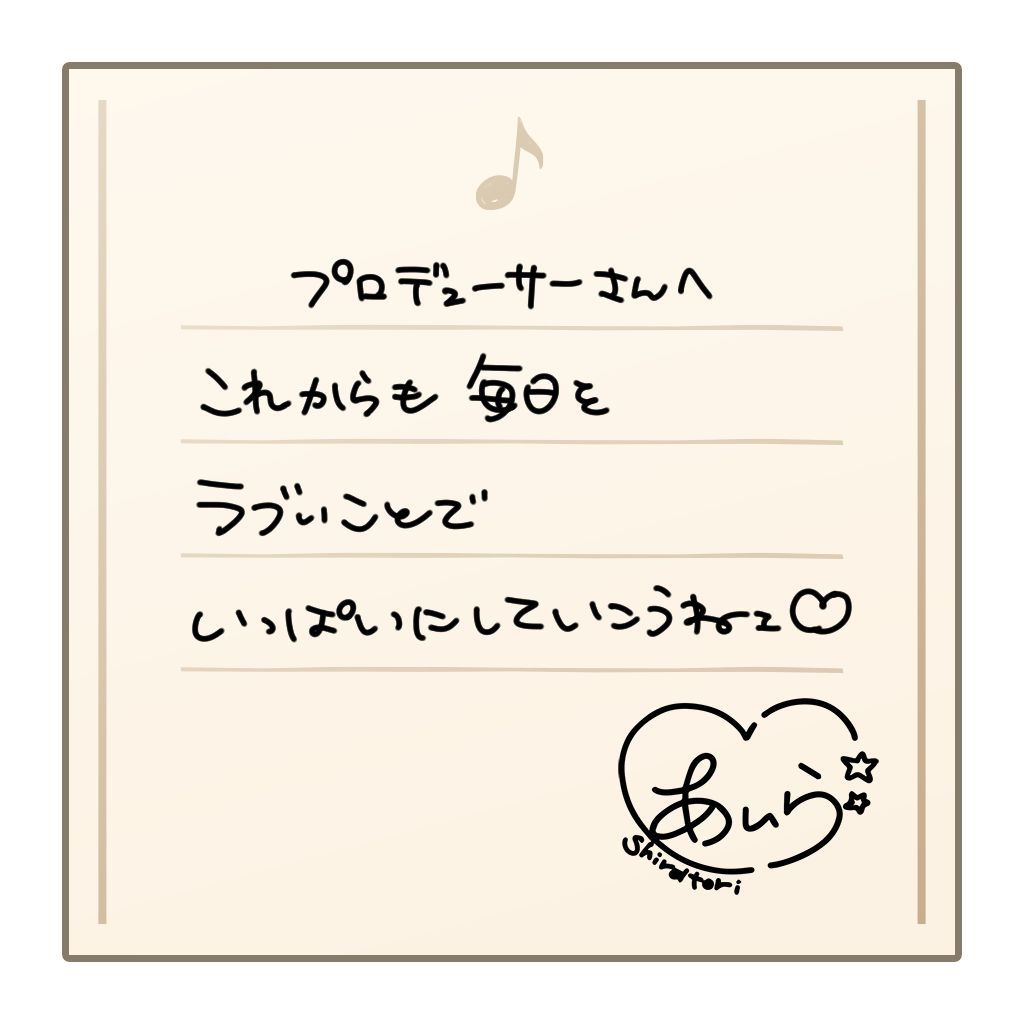 プロデューサーさんへ
これからも 毎日を
ラブいことで
いっぱいにしていこうねェ♡
あいら
Shiratori